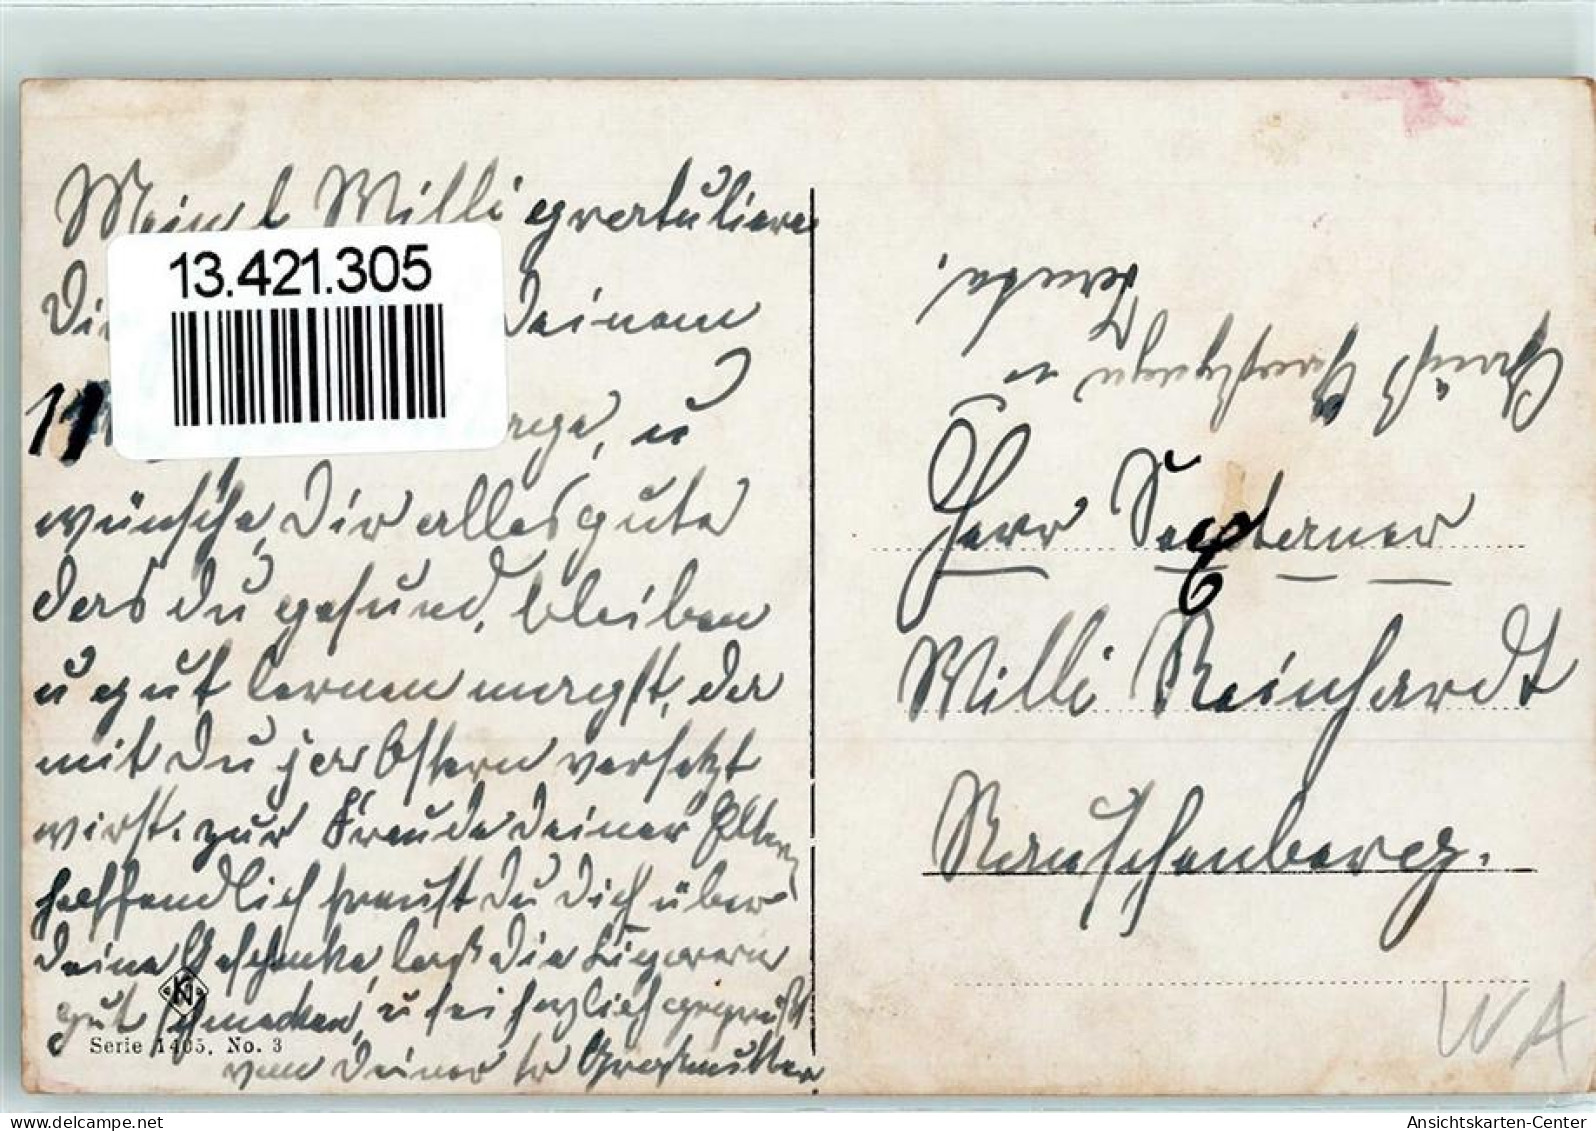 Mein l Willi gratuliere
Di Deinem
11 tage, u
wünsche Dir alles gute
das du gesund, bleiben
u gut lernen magst, da
mit du ja Ostern versetzt
wirst. zur Freude deiner Eltern
hoffendlich freust du dich über
deine Geschenke, laß die
gut schmecken, u sei herzlich gegrüßt
von deiner Großmutter
Serie 1405. No. 3
13.421.305
Gruß u
Herr
Willi Reinhardt
Rauschenberg.
WA
AnsichtsKarten-Center